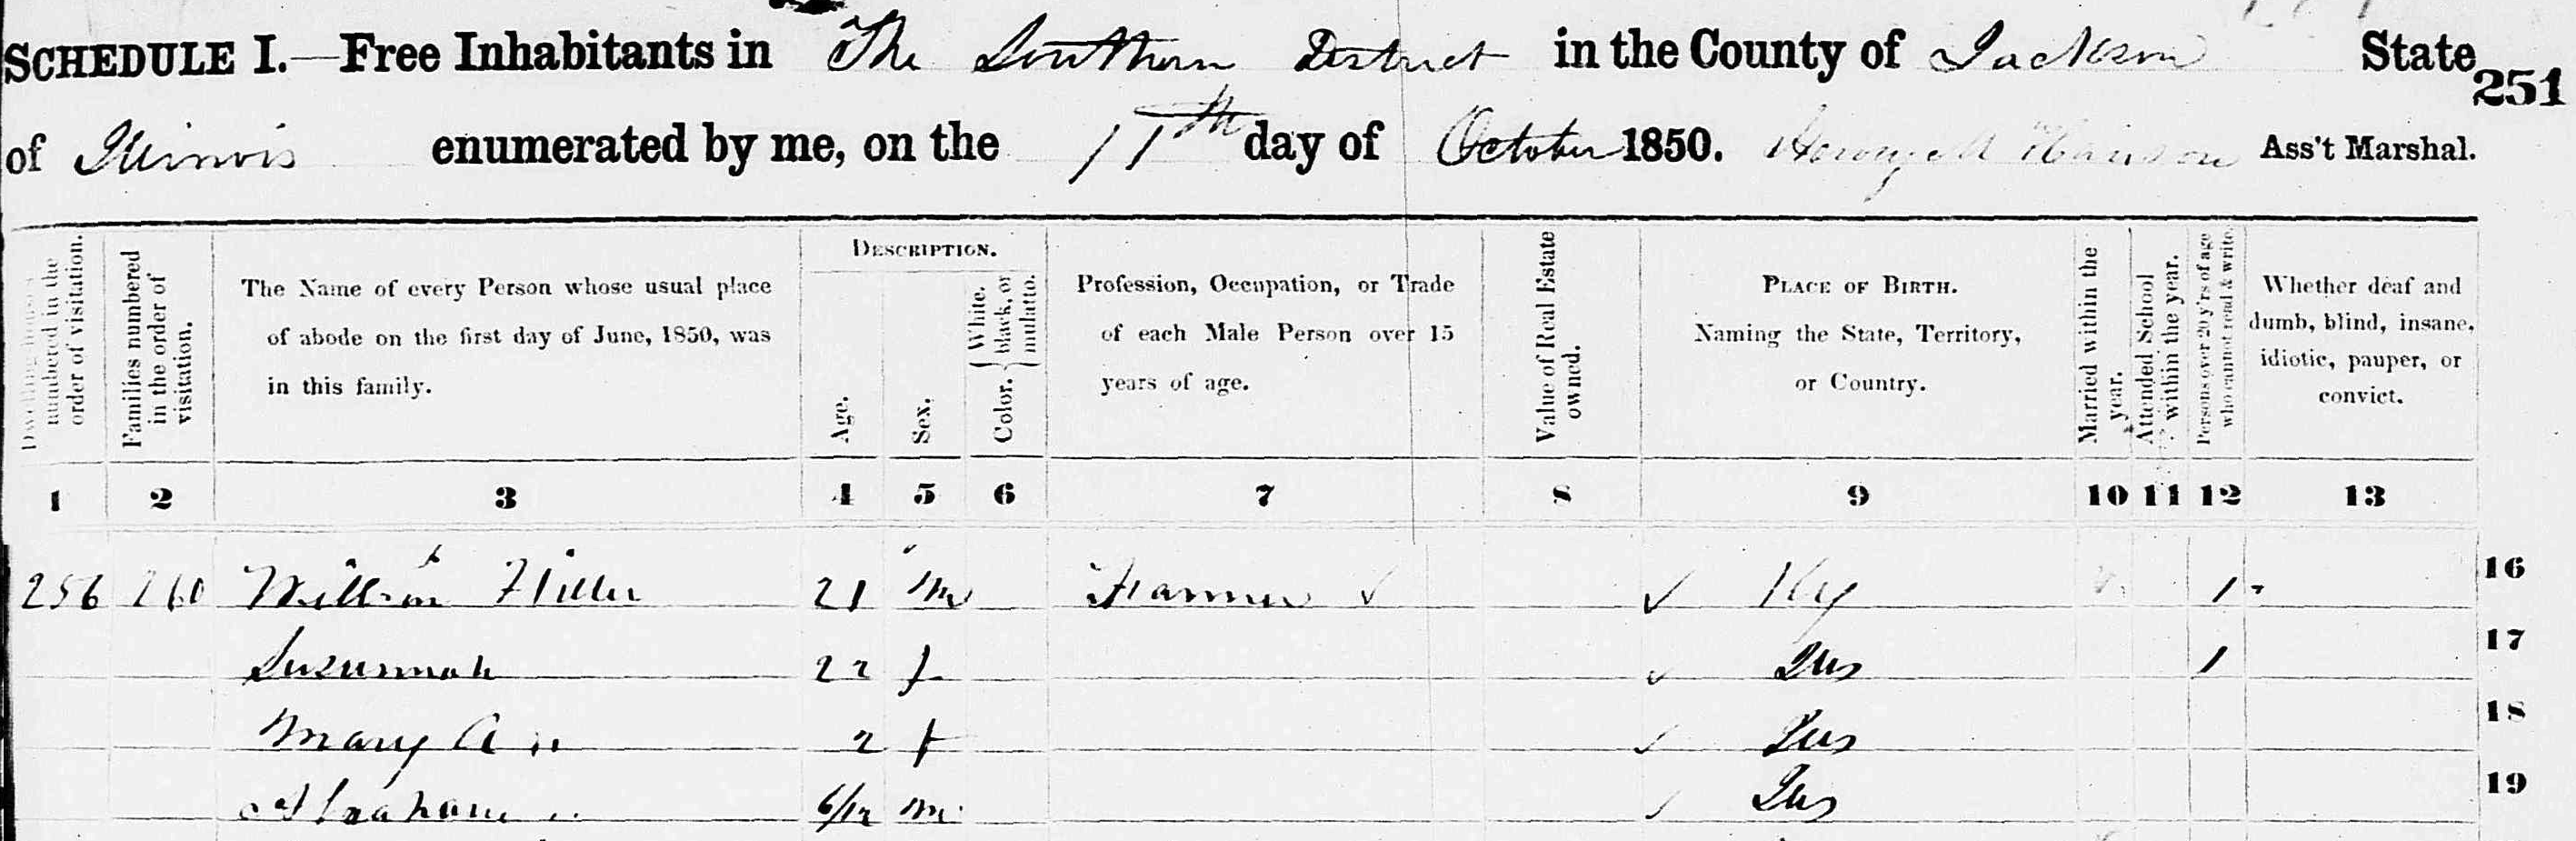 SCHEDULE I.—Free Inhabitants in The Southern District in the County of Jackson State
251
of Illinois enumerated by me, on the 11th day of October 1850. Ass't Marshal.
Dwelling-houses numbered in the order of visitation.
Families numbered in the order of visitation.
The Name of every Person whose usual place
of abode on the first day of June, 1850, was
in this family.
DESCRIPTION.
Age.
Sex.
Color. { White, black, or mulatto.
Profession, Occupation, or Trade
of each Male Person over 15
years of age.
Value of Real Estate owned.
PLACE OF BIRTH.
Naming the State, Territory,
or Country.
Married within the year.
Attended School within the year.
Persons over 20 y'rs of age who cannot read & write.
Whether deaf and
dumb, blind, insane,
idiotic, pauper, or
convict.
1 2 3 4 5 6 7 8 9 10 11 12 13
256 260 William 21 m Farmer ✓ ✓ Ky 1 16
Susannah 22 f ✓ Ills 1 17
Mary A " 2 f ✓ Ills 18
Abraham " 6/12 m ✓ Ills 19